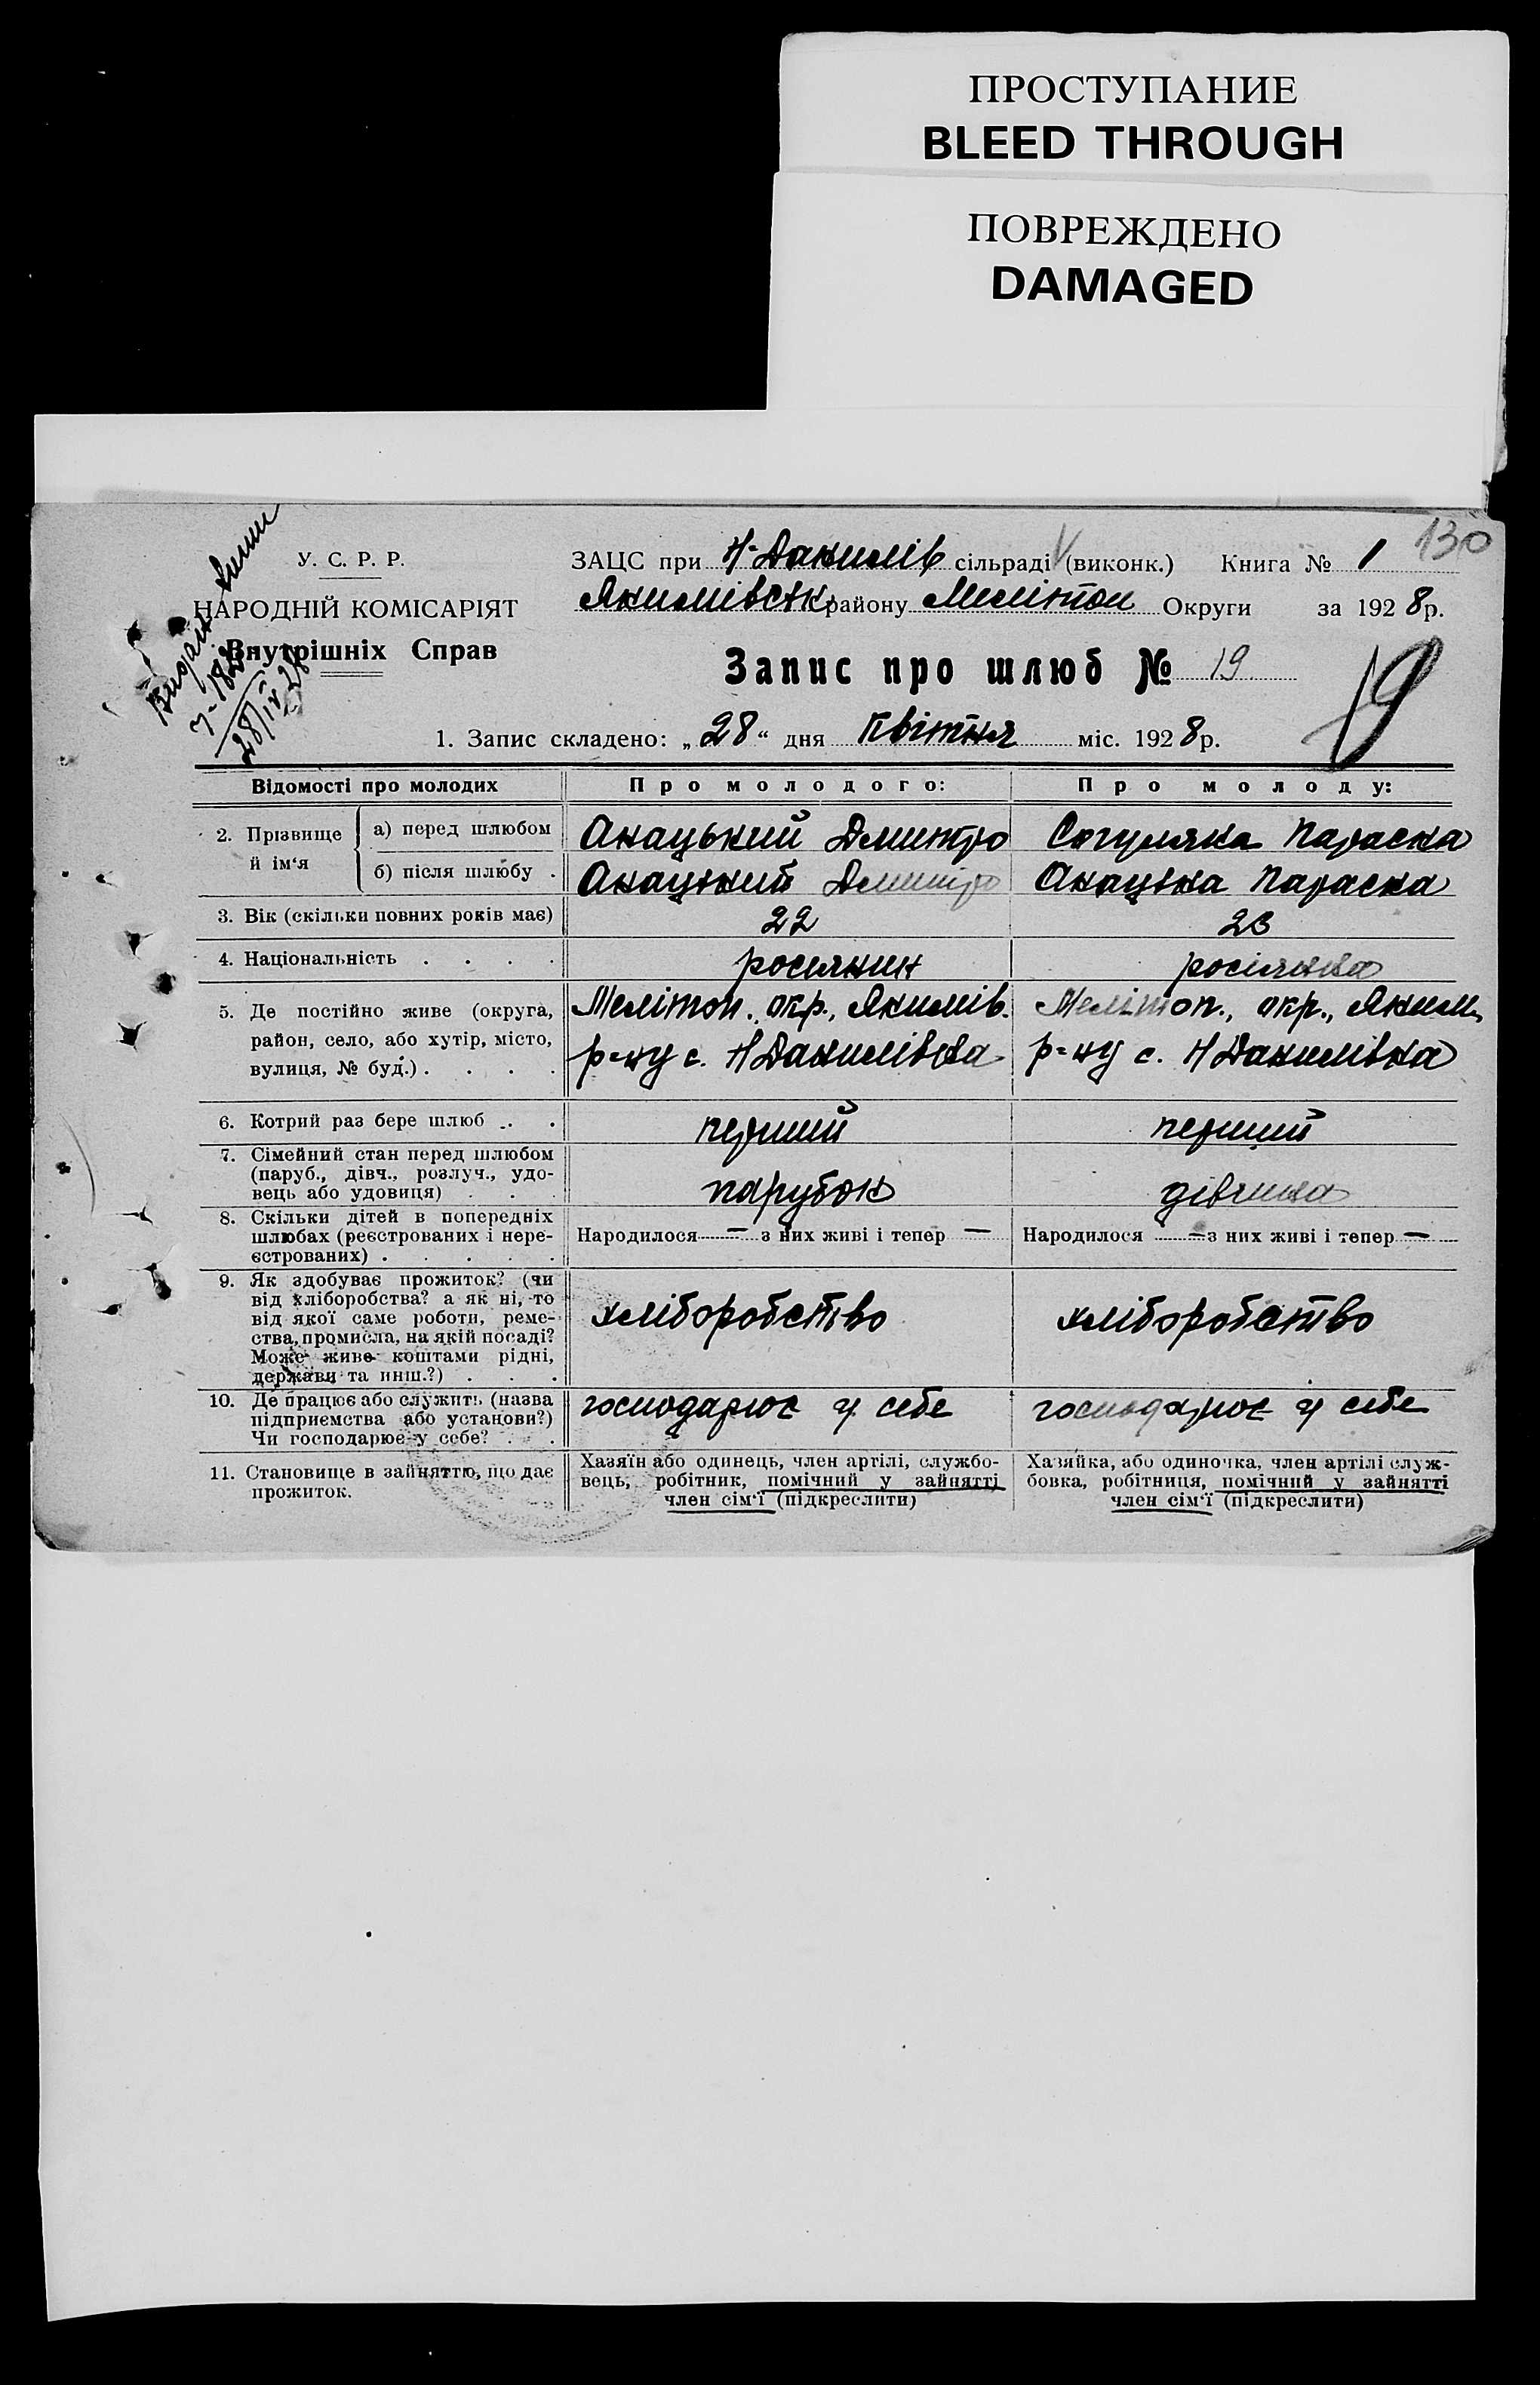 ПРОСТУПАНИЕ
BLEED THROUGH
ПОВРЕЖДЕНО
DAMAGED
130
У. С. Р. Р.
НАРОДНІЙ КОМІСАРІЯТ
Внутрішніх Справ
28/IV 28
ЗАЦС при Н-Данилів сільраді (виконк.) Книга № 1
Якимівськ району Мелітоп Округи за 1928 р.
Запис про шлюб № 19
19
1. Запис складено: „28“ дня Квітня міс. 1928 р.
Відомості про молодих Про молодого: Про молоду:
2. Прізвище й ім‘я
а) перед шлюбом Анацький Дмитро Сагуляка Параска
б) після шлюбу . Анацький Дмитро Анацька Параска
3. Вік (скільки повних років має) 22 23
4. Національність . . . . росиянин росіянка
5. Де постійно живе (округа, Меліт​оп. окр., Якимів. Мелітоп., окр., Яким.
район, село, або хутір, місто, р=ну с. Н Данилівка р=ну с. Н Данилівка
вулиця, № буд.) . . . .
6. Котрий раз бере шлюб . . перший перший
7. Сімейний стан перед шлюбом
(паруб., дівч., розлуч., удо-
вець або удовиця) . . . парубок дівчина
8. Скільки дітей в попередніх
шлюбах (реєстрованих і нере- Народилося — з них живі і тепер — Народилося — з них живі і тепер —
єстрованих) . . . . .
9. Як здобуває прожиток? (чи
від хліборобства? а як ні, то
від якої саме роботи, реме- хліборобство хліборобство
ства, промисла, на якій посаді?
Може живе коштами рідні,
держави та инш.?) . . .
10. Де працює або служить (назва господарює у себе господарює у себе
підприємства або установи?)
Чи господарює у себе? . .
11. Становище в зайняттю, що дає
прожиток.
Хазяїн або одинець, член артілі, службо-
вець, робітник, помічний у зайнятті
член сім‘ї (підкреслити)
Хазяйка, або одиночка, член артілі служ-
бовка, робітниця, помічний у зайнятті
член сім‘ї (підкреслити)